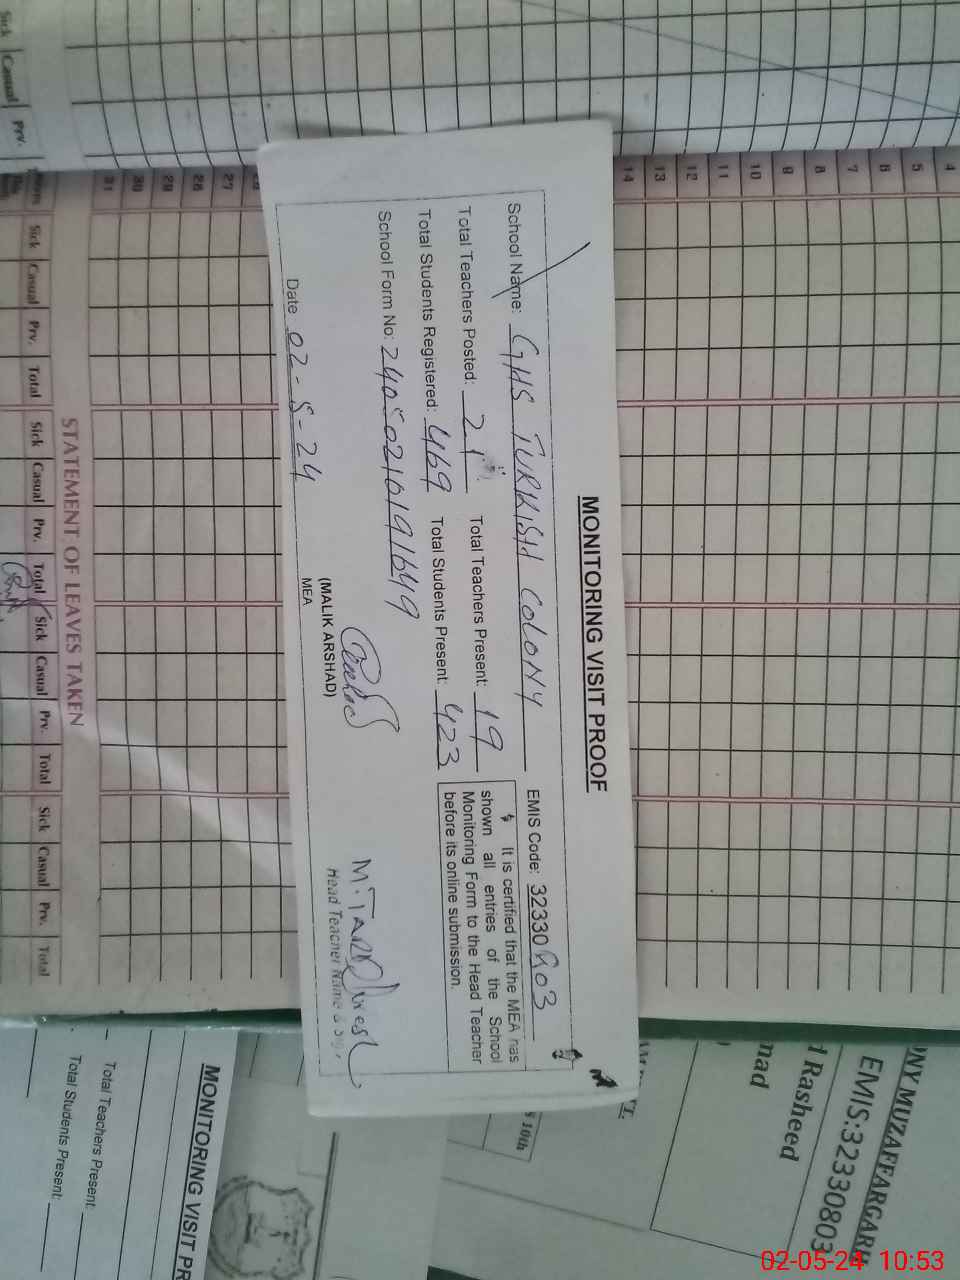 MONITORING VISIT PROOF
School Name: GHS TURKISH COLONY EMIS Code: 32330803
Total Teachers Posted: 21 Total Teachers Present: 19
Total Students Registered: 469 Total Students Present: 423
School Form No: 24050210191649
It is certified that the MEA has
shown all entries of the School
Monitoring Form to the Head Teacher
before its online submission.
Date 02-5-24
(MALIK ARSHAD)
MEA
Head Teacher Name &
4 5 6 7 8 9 10 11 12 13 14
27 28 29 30 31
Sick Casual Prv. Total Sick Casual Prv. Total Sick Casual Prv. Total Sick Casual Prv. Total
STATEMENT OF LEAVES TAKEN
Sick Casual Prv.
NY MUZAFFARGARH
EMIS:32330803
Rasheed
10th
MONITORING VISIT PR
Total Teachers Present:
Total Students Present:
02-05-24 10:53